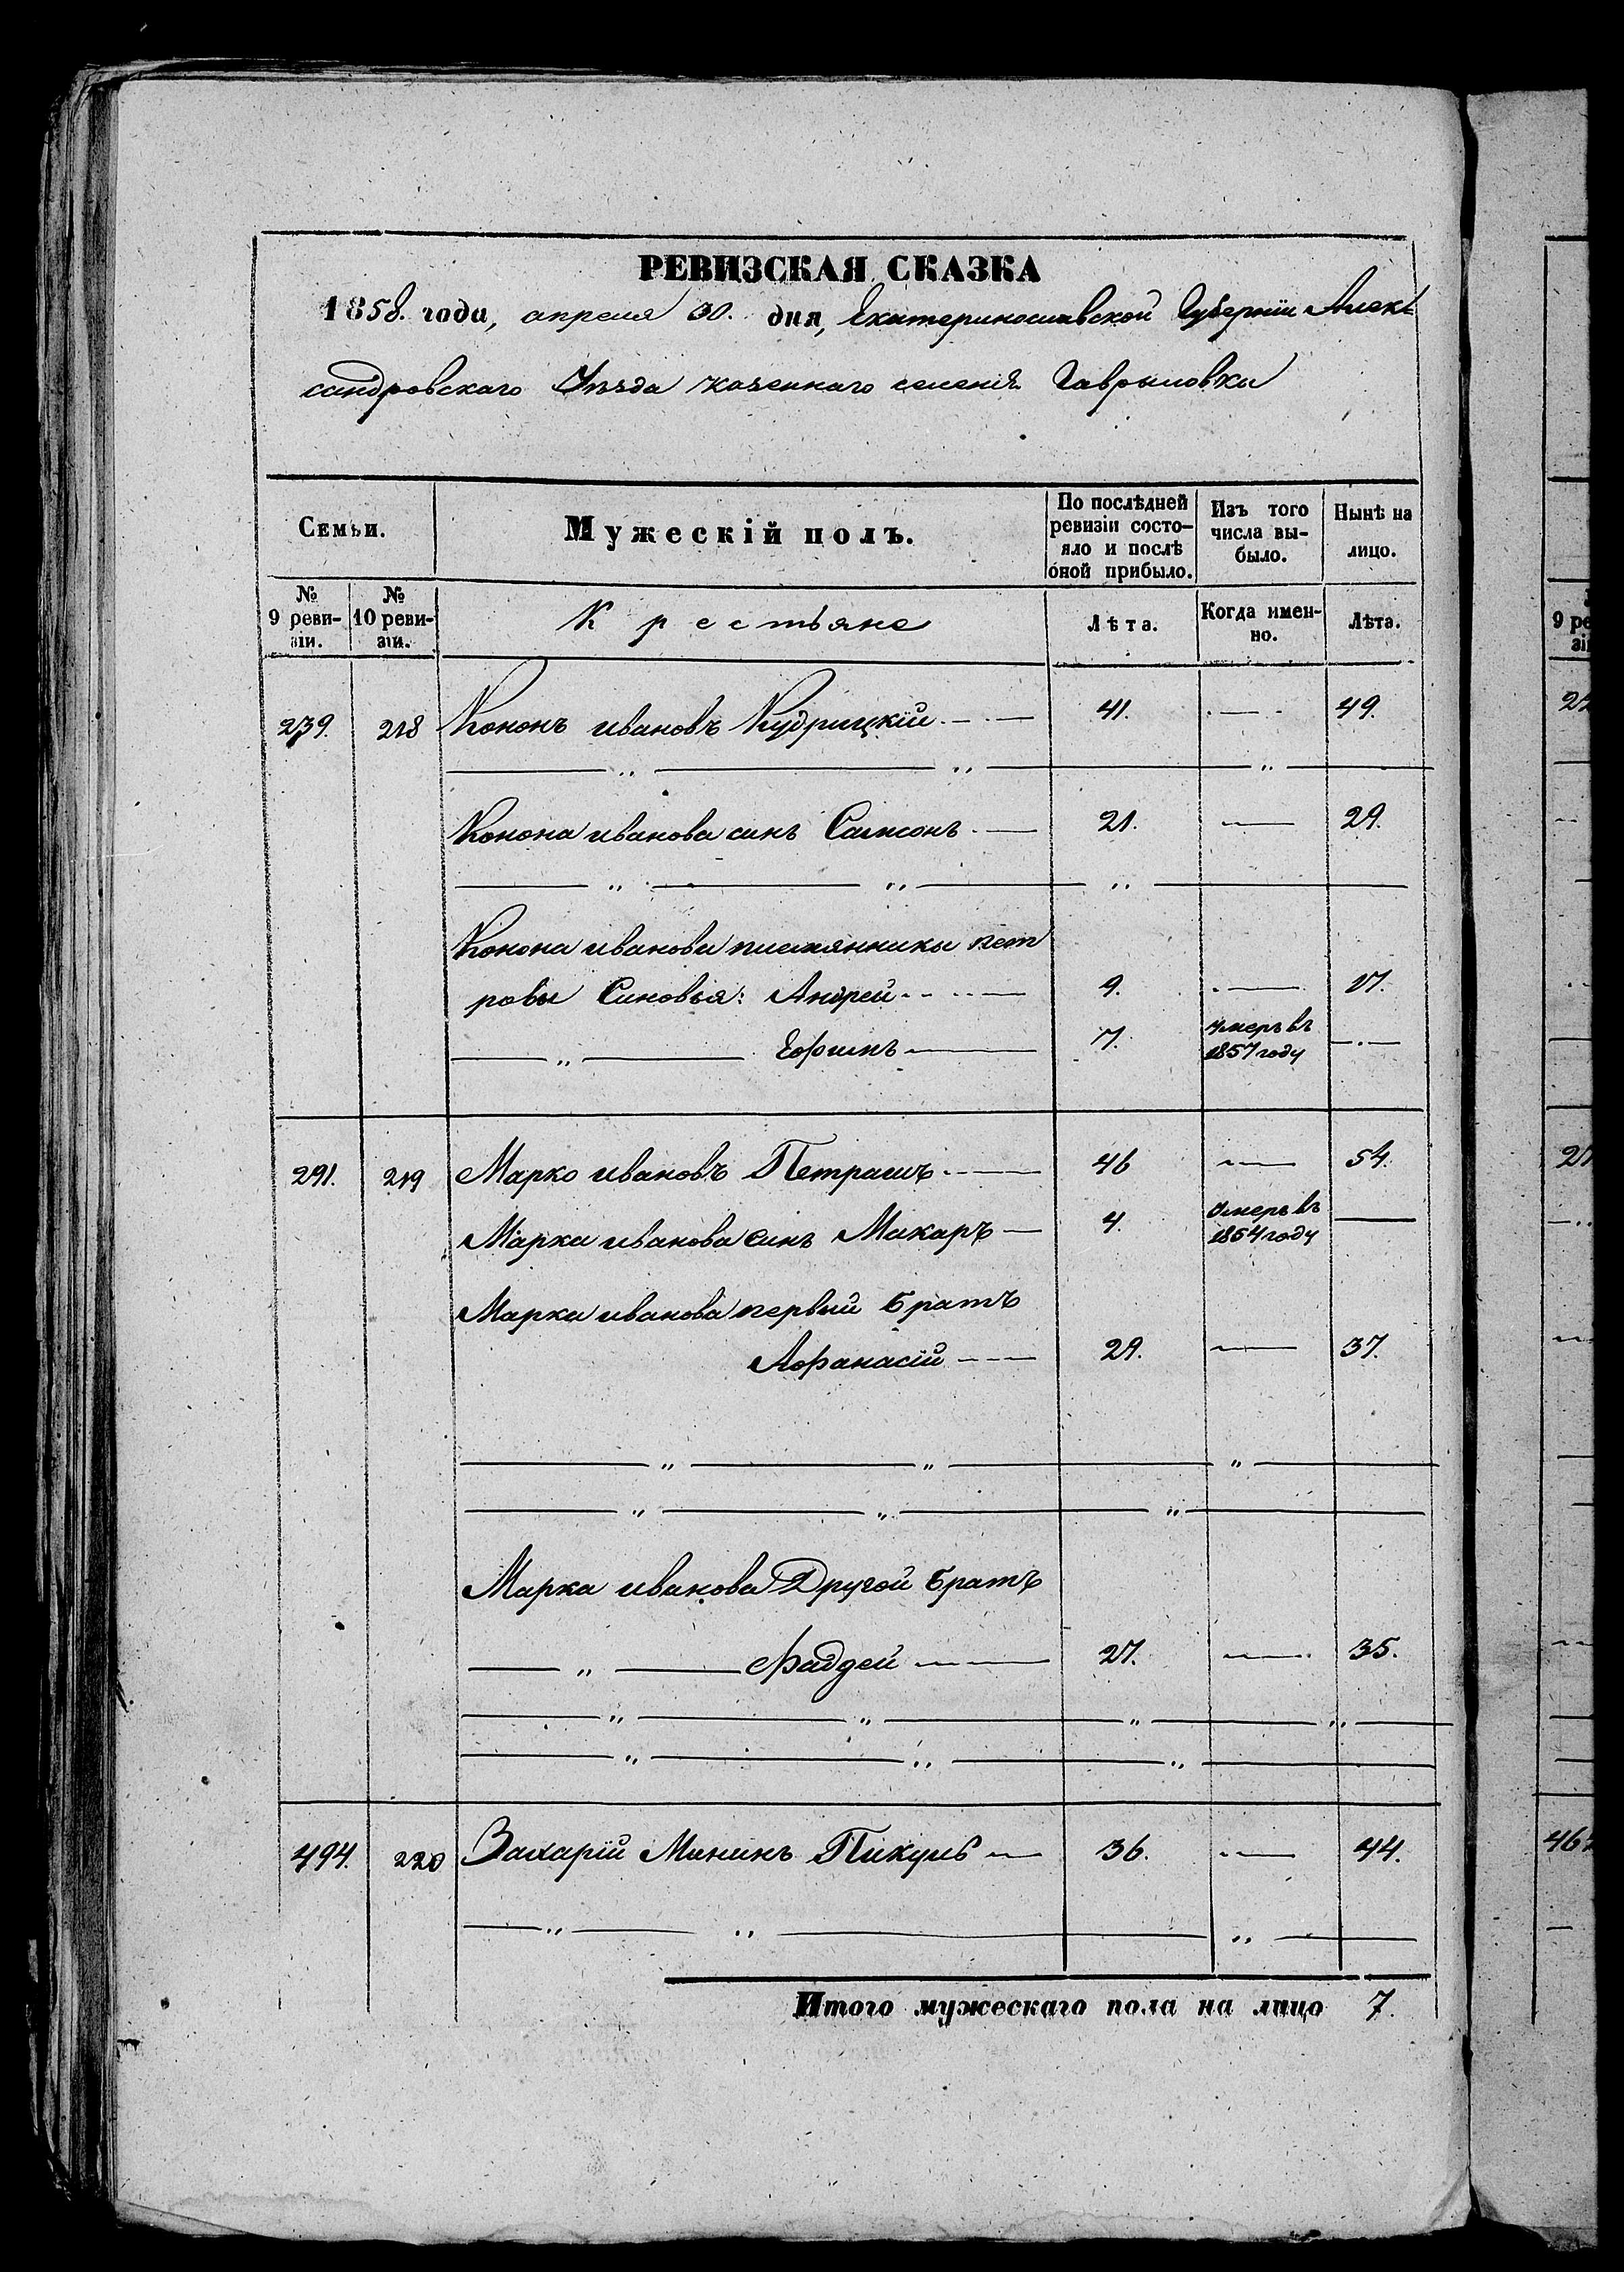 РЕВИЗСКАЯ СКАЗКА
1858. года, апреля 30. дня, Екатеринославской Губерніи Алек-
сандровскаго Уѣзда казеннаго селенія Гаврыловки
Семьи.
Мужескій полъ.
По послѣдней
ревизіи состо-
яло и послѣ
оной прибыло.
Изъ того
числа вы-
было.
Нынѣ на
лицо.
№
9 реви-
зіи.
№
10 реви-
зіи.
Крестьяне
Лѣта.
Когда имен-
но.
Лѣта.
239. 218 Кононъ ивановъ Кудрицкій 41. 49.
Конона иванова синъ Самсонъ 21. 29.
Конона иванова племянники пет
ровы Синовья: Андрей 9. 17.
Ефимъ 7. умеръ въ
1857 году
291. 219 Марко ивановъ Петрашъ 46 54.
Марка иванова синъ Макаръ 4. умеръ въ
1854 году
Марка иванова первый братъ
Афанасій 29. 37.
Марка иванова Другой братъ
Фаддей 27. 35.
494. 220 Захарій Мининъ Пікуль 36. 44.
Итого мужескаго пола на лицо 7.
9 ре
зі